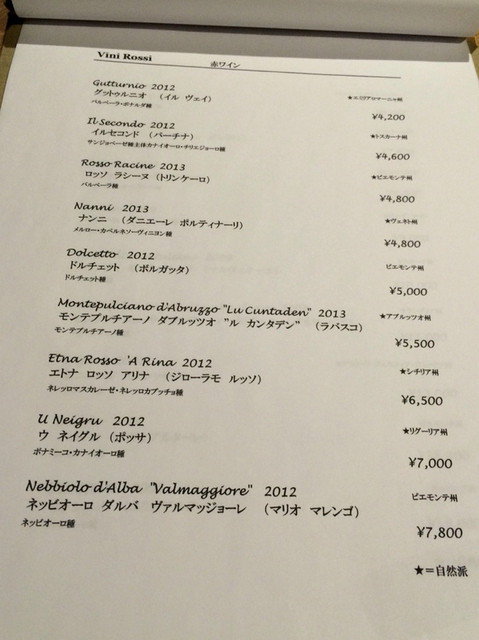 Vini Rossi 赤ワイン
Gutturnio 2012
グットゥルニオ （イル ヴェイ） ★エミリアロマーニャ州
バルベーラ・ボナルダ種
¥4,200
Il Secondo 2012
イルセコンド （パーチナ） ★トスカーナ州
サンジョベーゼ種主体カナイオーロ・チリエジョーロ種
¥4,600
Rosso Racine 2013
ロッソ ラシーヌ （トリンケーロ） ★ピエモンテ州
バルベーラ種
¥4,800
Nanni 2013
ナンニ （ダニエーレ ポルティナーリ） ★ヴェネト州
メルロー・カベルネソーヴィニヨン種
¥4,800
Dolcetto 2012
ドルチェット （ボルガッタ） ピエモンテ州
ドルチェット種
¥5,000
Montepulciano d'Abruzzo "Lu Cuntaden" 2013
モンテプルチアーノ ダブルッツオ "ル カンタデン" （ラバスコ） ★アブルッツオ州
モンテプルチアーノ種
¥5,500
Etna Rosso 'A Rina 2012
エトナ ロッソ アリナ （ジローラモ ルッソ） ★シチリア州
ネレッロマスカレーゼ・ネレッロカプッチョ種
¥6,500
U Neigru 2012
ウ ネイグル （ポッサ） ★リグーリア州
ボナミーコ・カナイオーロ種
¥7,000
Nebbiolo d'Alba "Valmaggiore" 2012
ネッビオーロ ダルバ ヴァルマッジョーレ （マリオ マレンゴ） ピエモンテ州
ネッビオーロ種
¥7,800
★＝自然派